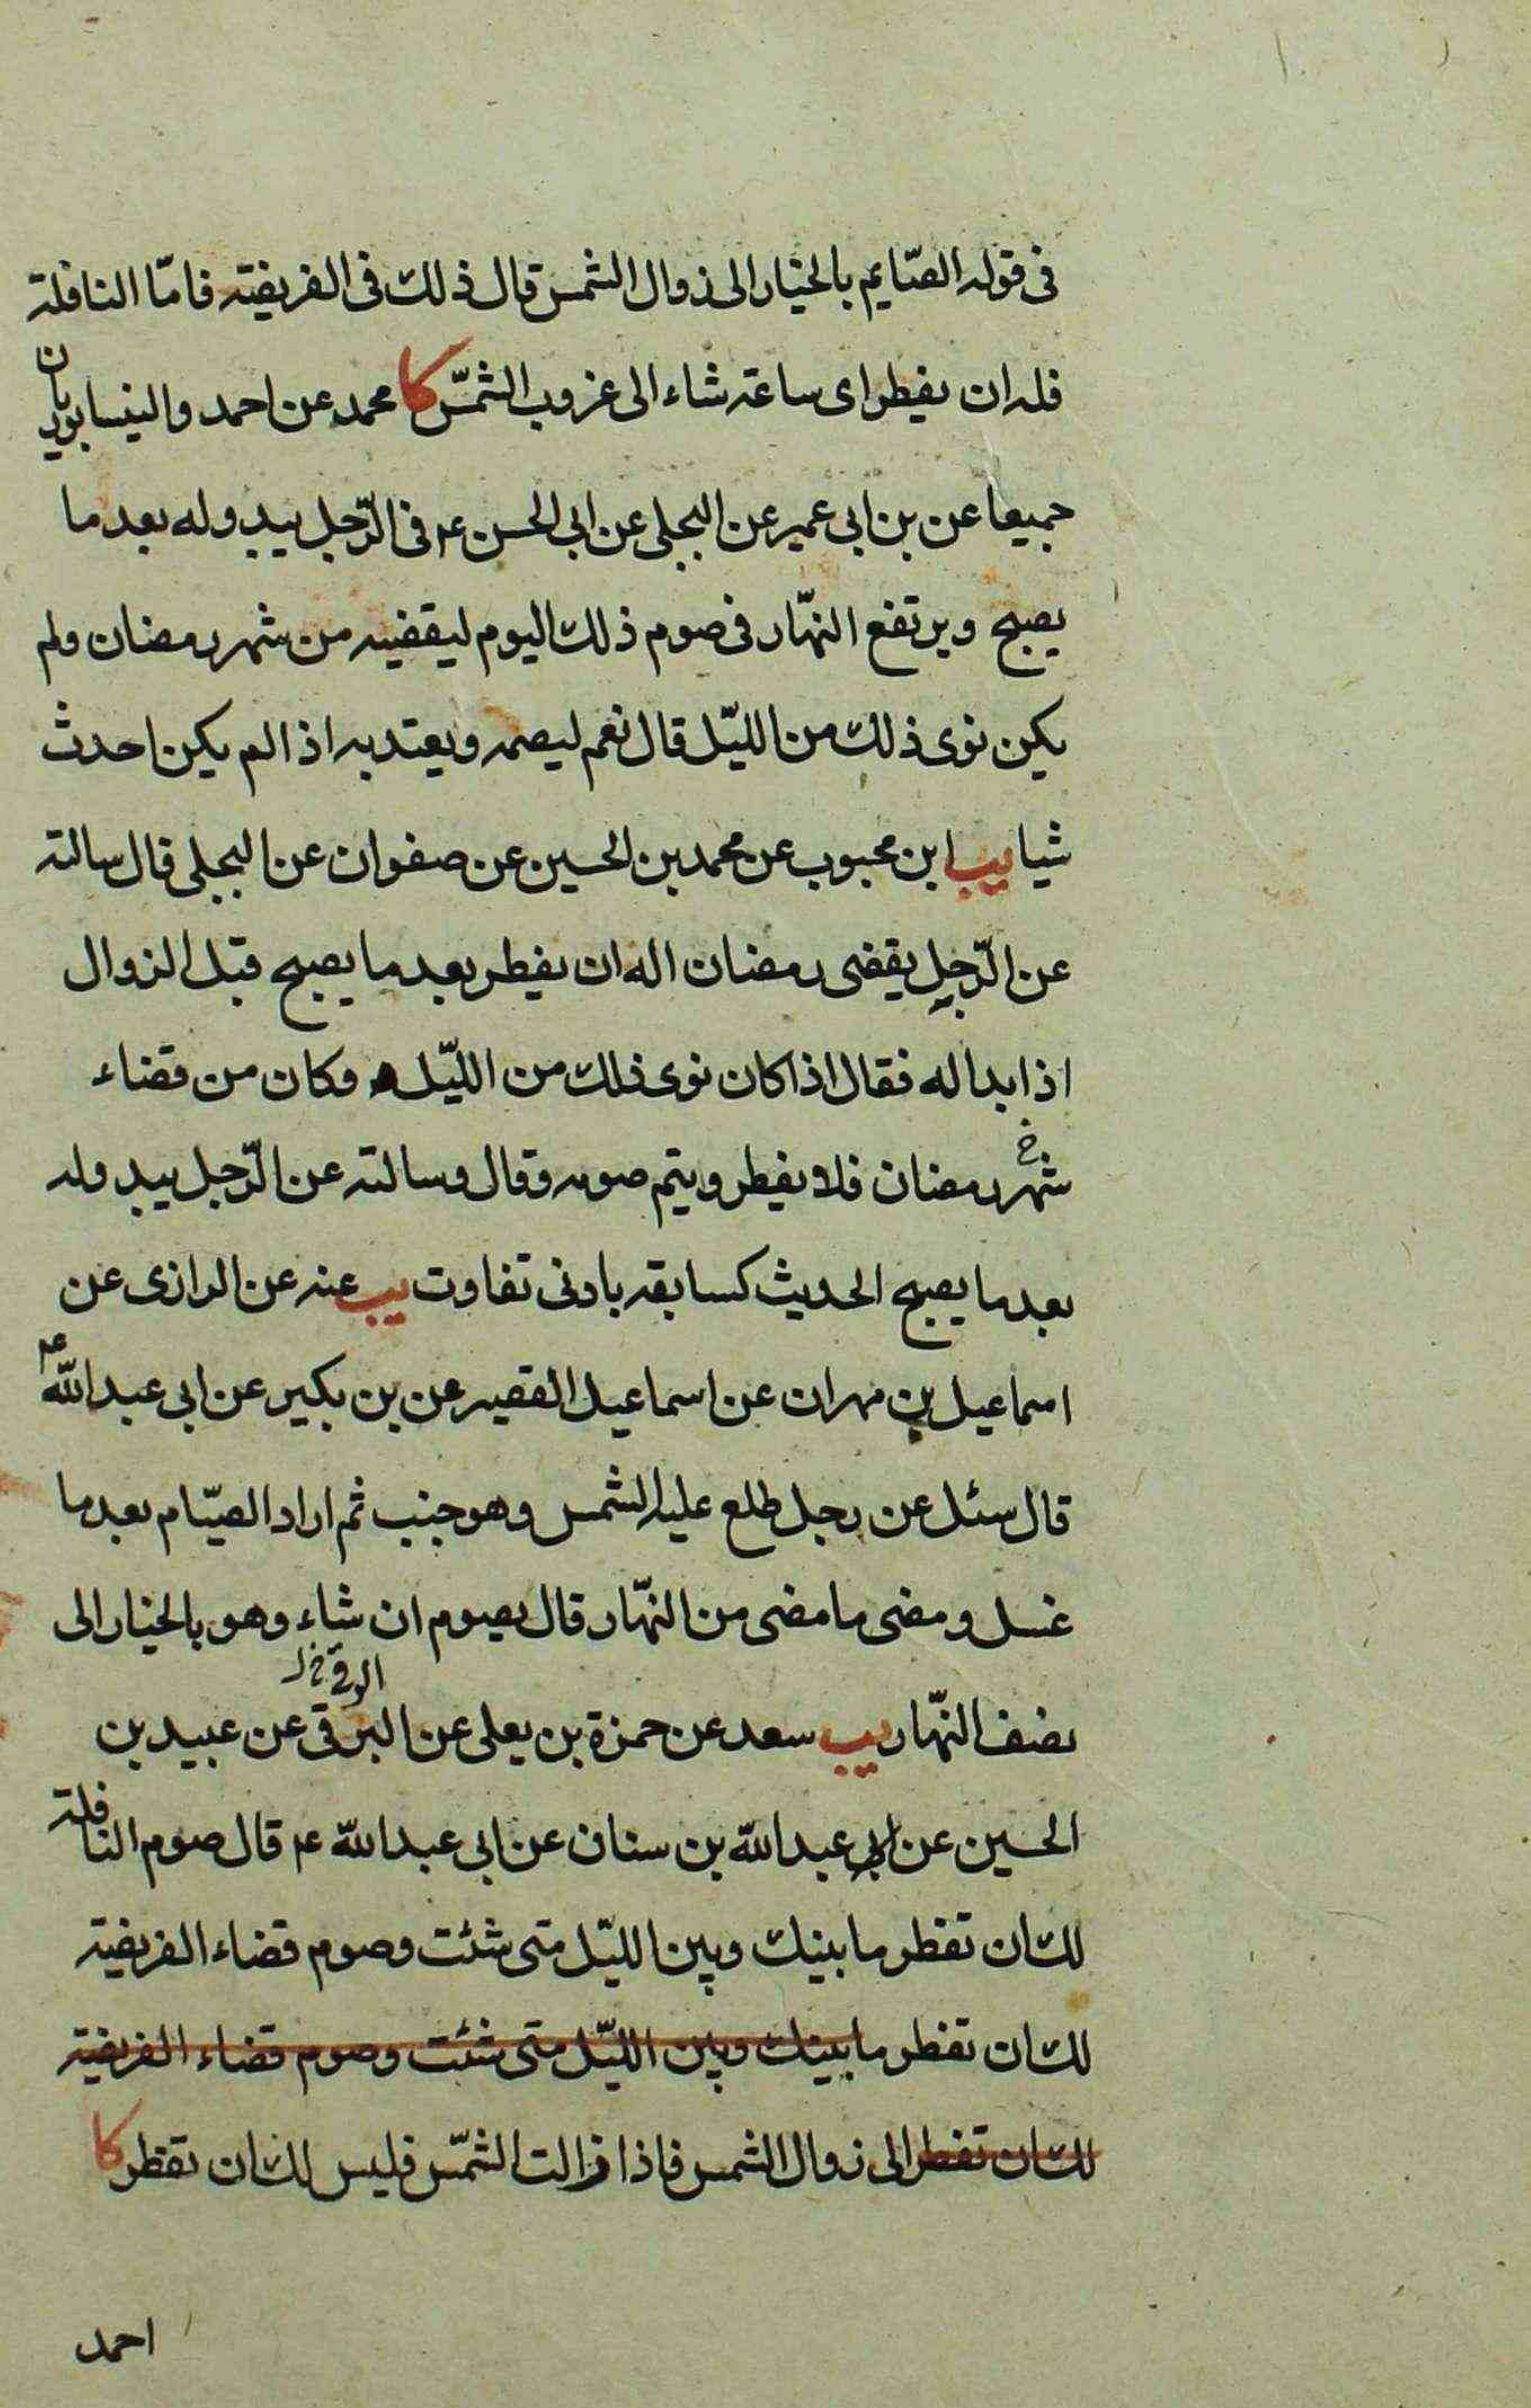 فى قوله الصّايم بالخيار الى زوال الشمس قال ذلك فى الفريضة فامّا النافلة
فله ان يفطر اى ساعة شاء الى غروب الشمّس كا محمد عن احمد والنيسابوريان
جميعا عن بن ابى عمير عن البجلى عن ابى الحسن ع م فى الرّجل يبدو له بعد ما
يصبح ويرتفع النهّار فى صوم ذلك اليوم ليقضيه من شهر رمضان ولم
يكن نوى ذلك من الليّل قال نعم ليصمه ويعتد به اذا لم يكن احدث
شيا يب ابن محبوب عن محمد بن الحسين عن صفوان عن البجلى قال سالته
عن الرّجل يقضى رمضان اله ان يفطر بعد ما يصبح قبل الزوال
اذا بدا له فقال اذا كان نوى ذلك من الليّل وكان من قضاء
شهر رمضان فلا يفطر ويتم صومه وقال وسالته عن الرّجل يبدو له
بعد ما يصبح الحديث كسابقه بادنى تفاوت يب عنه عن الرازى عن
اسماعيل بن مهران عن اسماعيل القصير عن بن بكير عن ابى عبد الله ع م
قال سئل عن رجل طلع عليه الشمس وهو جنب ثم اراد الصيّام بعد ما
غسل ومضى ما مضى من النهّار قال يصوم ان شاء وهو بالخيار الى
نصف النهّار يب سعد عن حمزة بن يعلى عن البرقى عن عبيد بن
الحسين عن ابى عبد الله بن سنان عن ابى عبد الله ع م قال صوم النافلة
لك ان تفطر ما بينك وبين الليّل متى شئت وصوم قضاء الفريضة
لك ان تفطر ما بينك وبين الليّل متى شئت وصوم قضاء الفريضة
لك ان تفطر الى زوال الشمس فاذا زالت الشمّس فليس لك ان تفطر كا
احمد